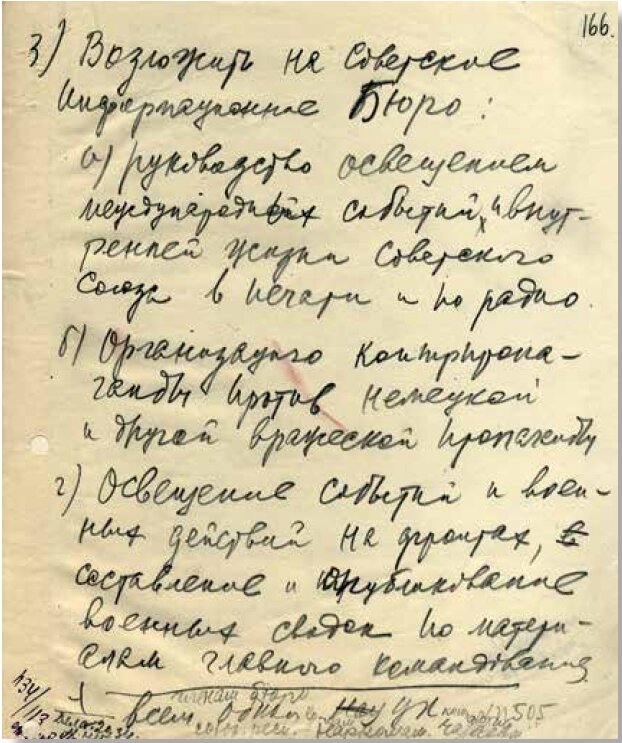 166.
3) Возложить на Советское
Информационное Бюро:
а) руководство освещением
международных событий и внут-
ренней жизни Советского
Союза в печати и по радио.
б) Организацию контрпропа-
ганды против немецкой
и другой вражеской пропаганды
г) Освещение событий и воен-
ных действий на фронтах,
составление и опубликование
военных сводок по матери-
алам главного командования